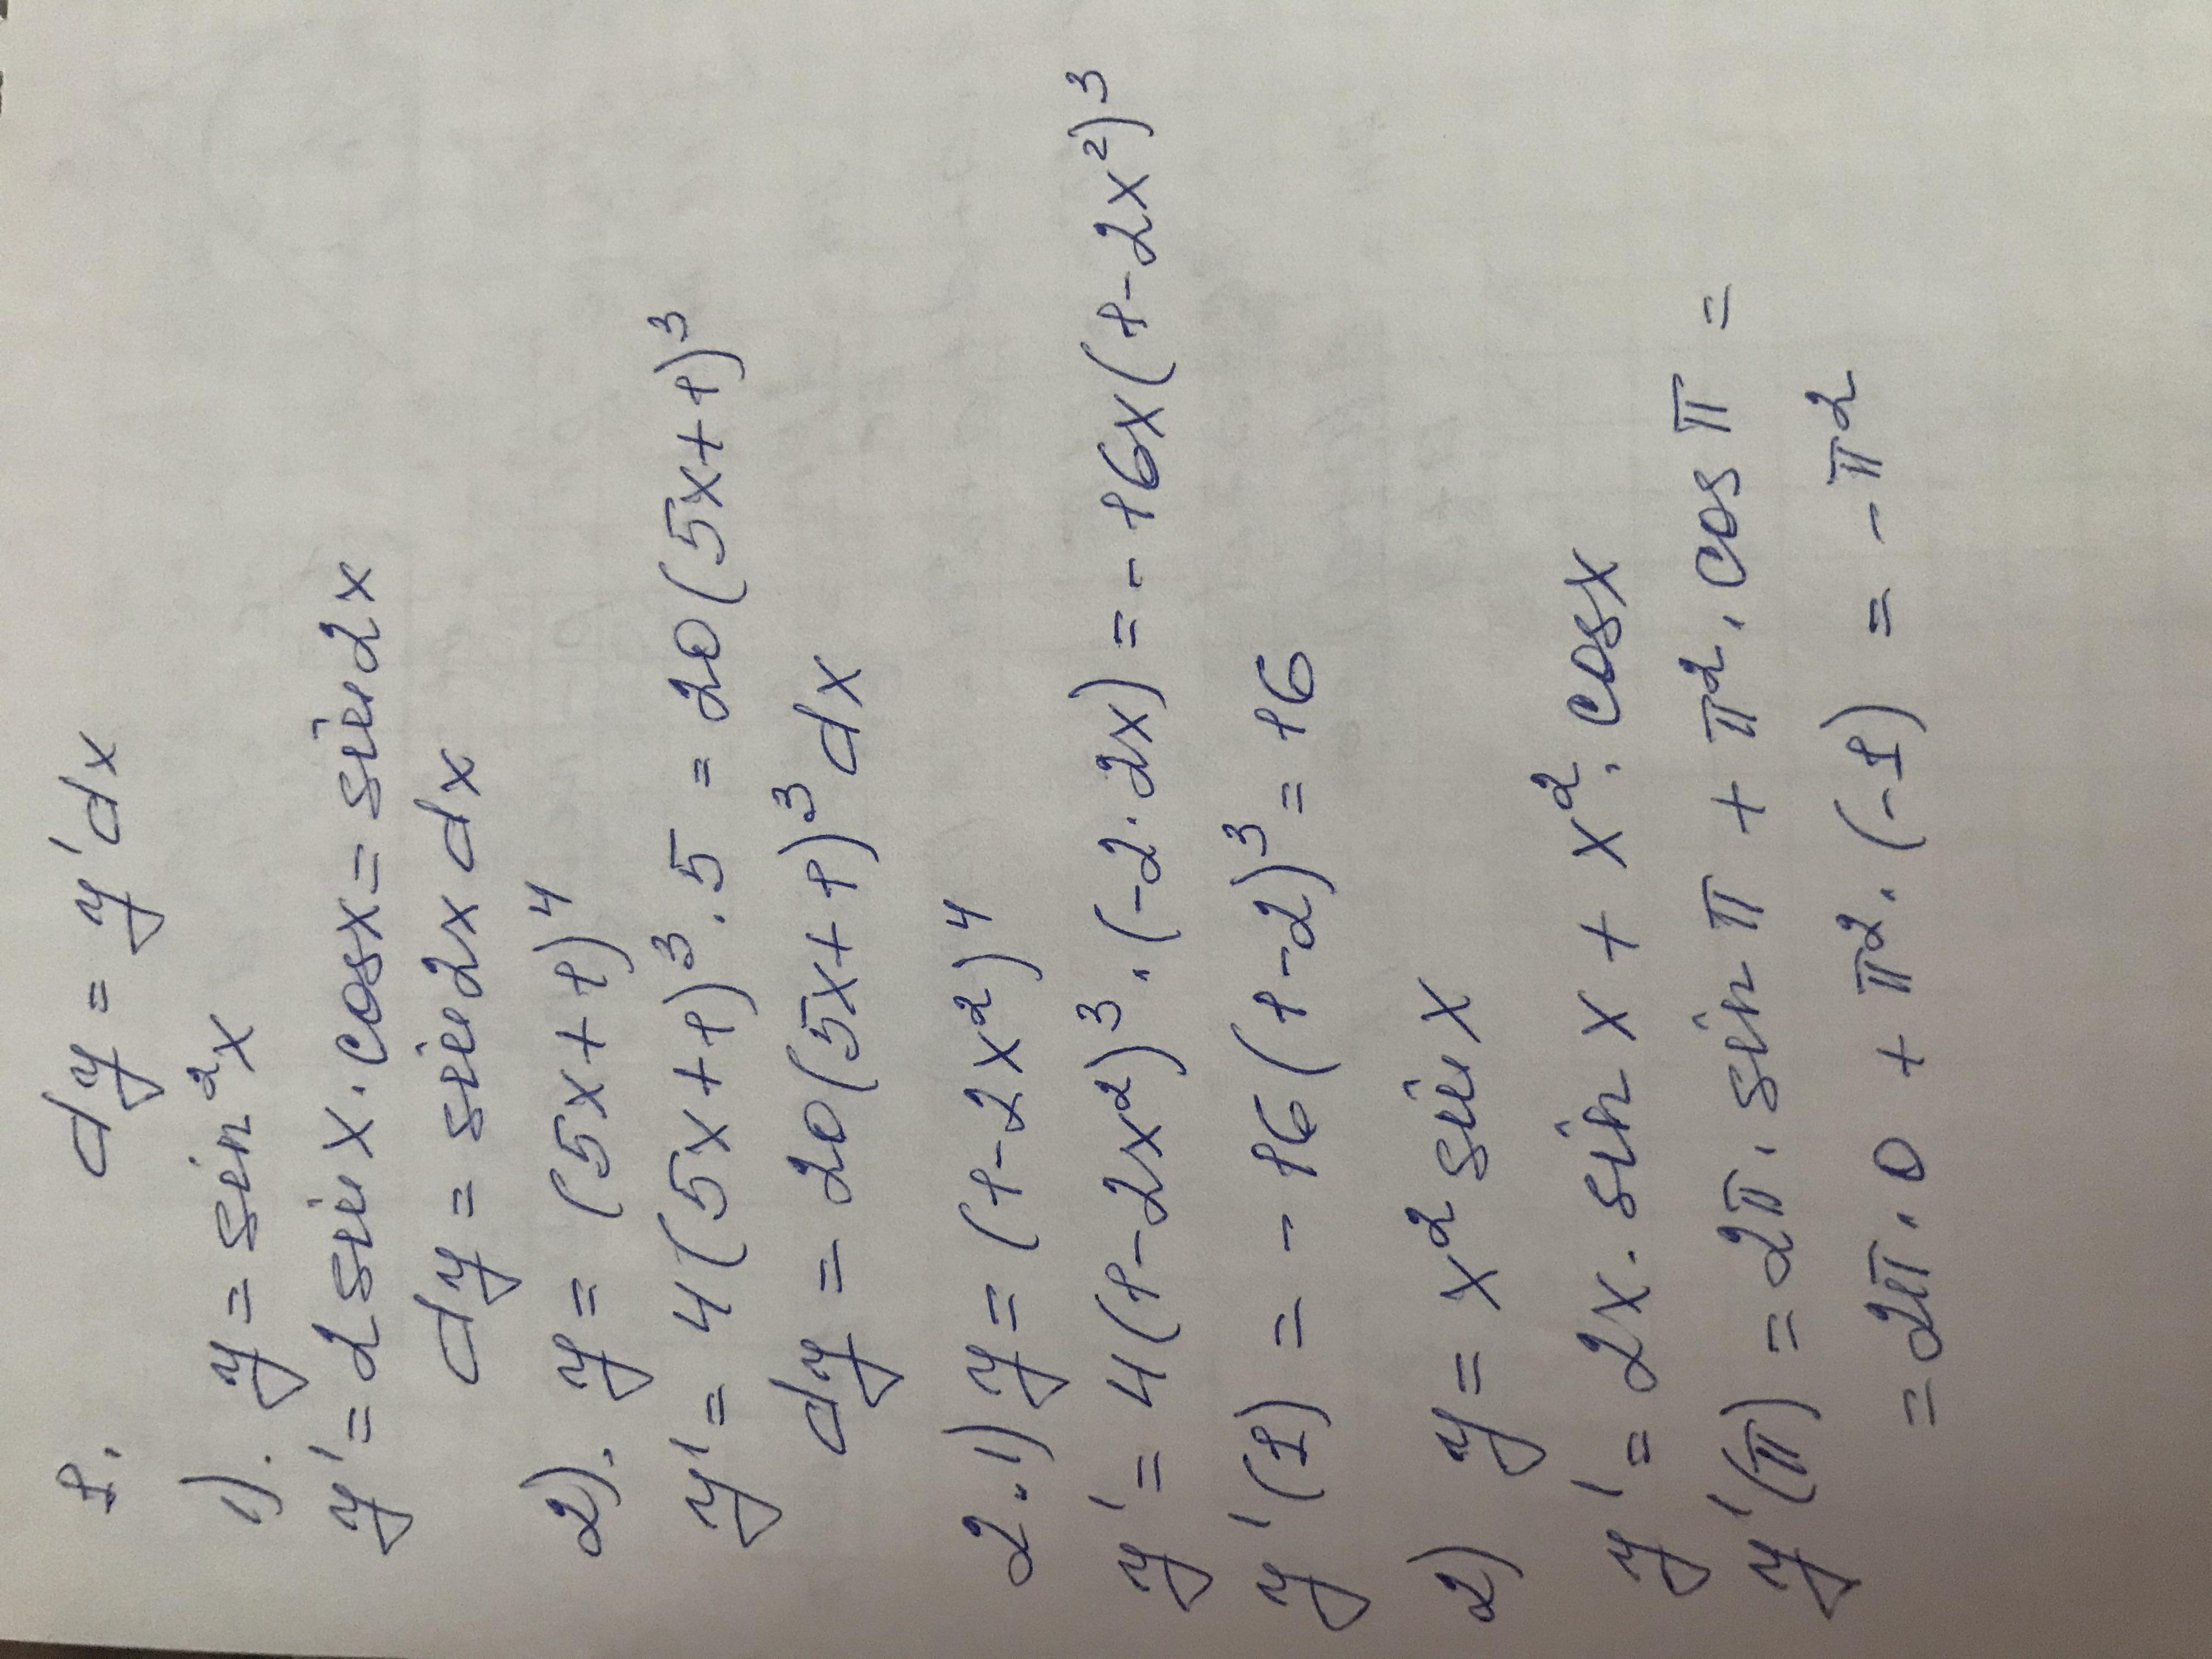 1. dy = y'dx
1). y = sin²x
y' = 2 sin x · cosx = sin 2x
dy = sin 2x dx
2). y = (5x+1)⁴
y' = 4(5x+1)³ · 5 = 20(5x+1)³
dy = 20(5x+1)³ dx
2. 1) y = (1-2x²)⁴
y' = 4(1-2x²)³ · (-2·2x) = -16x(1-2x²)³
y'(1) = -16(1-2)³ = 16
2) y = x² sin x
y' = 2x · sin x + x² · cosx
y'(π) = 2π · sin π + π² · cos π =
= 2π · 0 + π² · (-1) = -π²